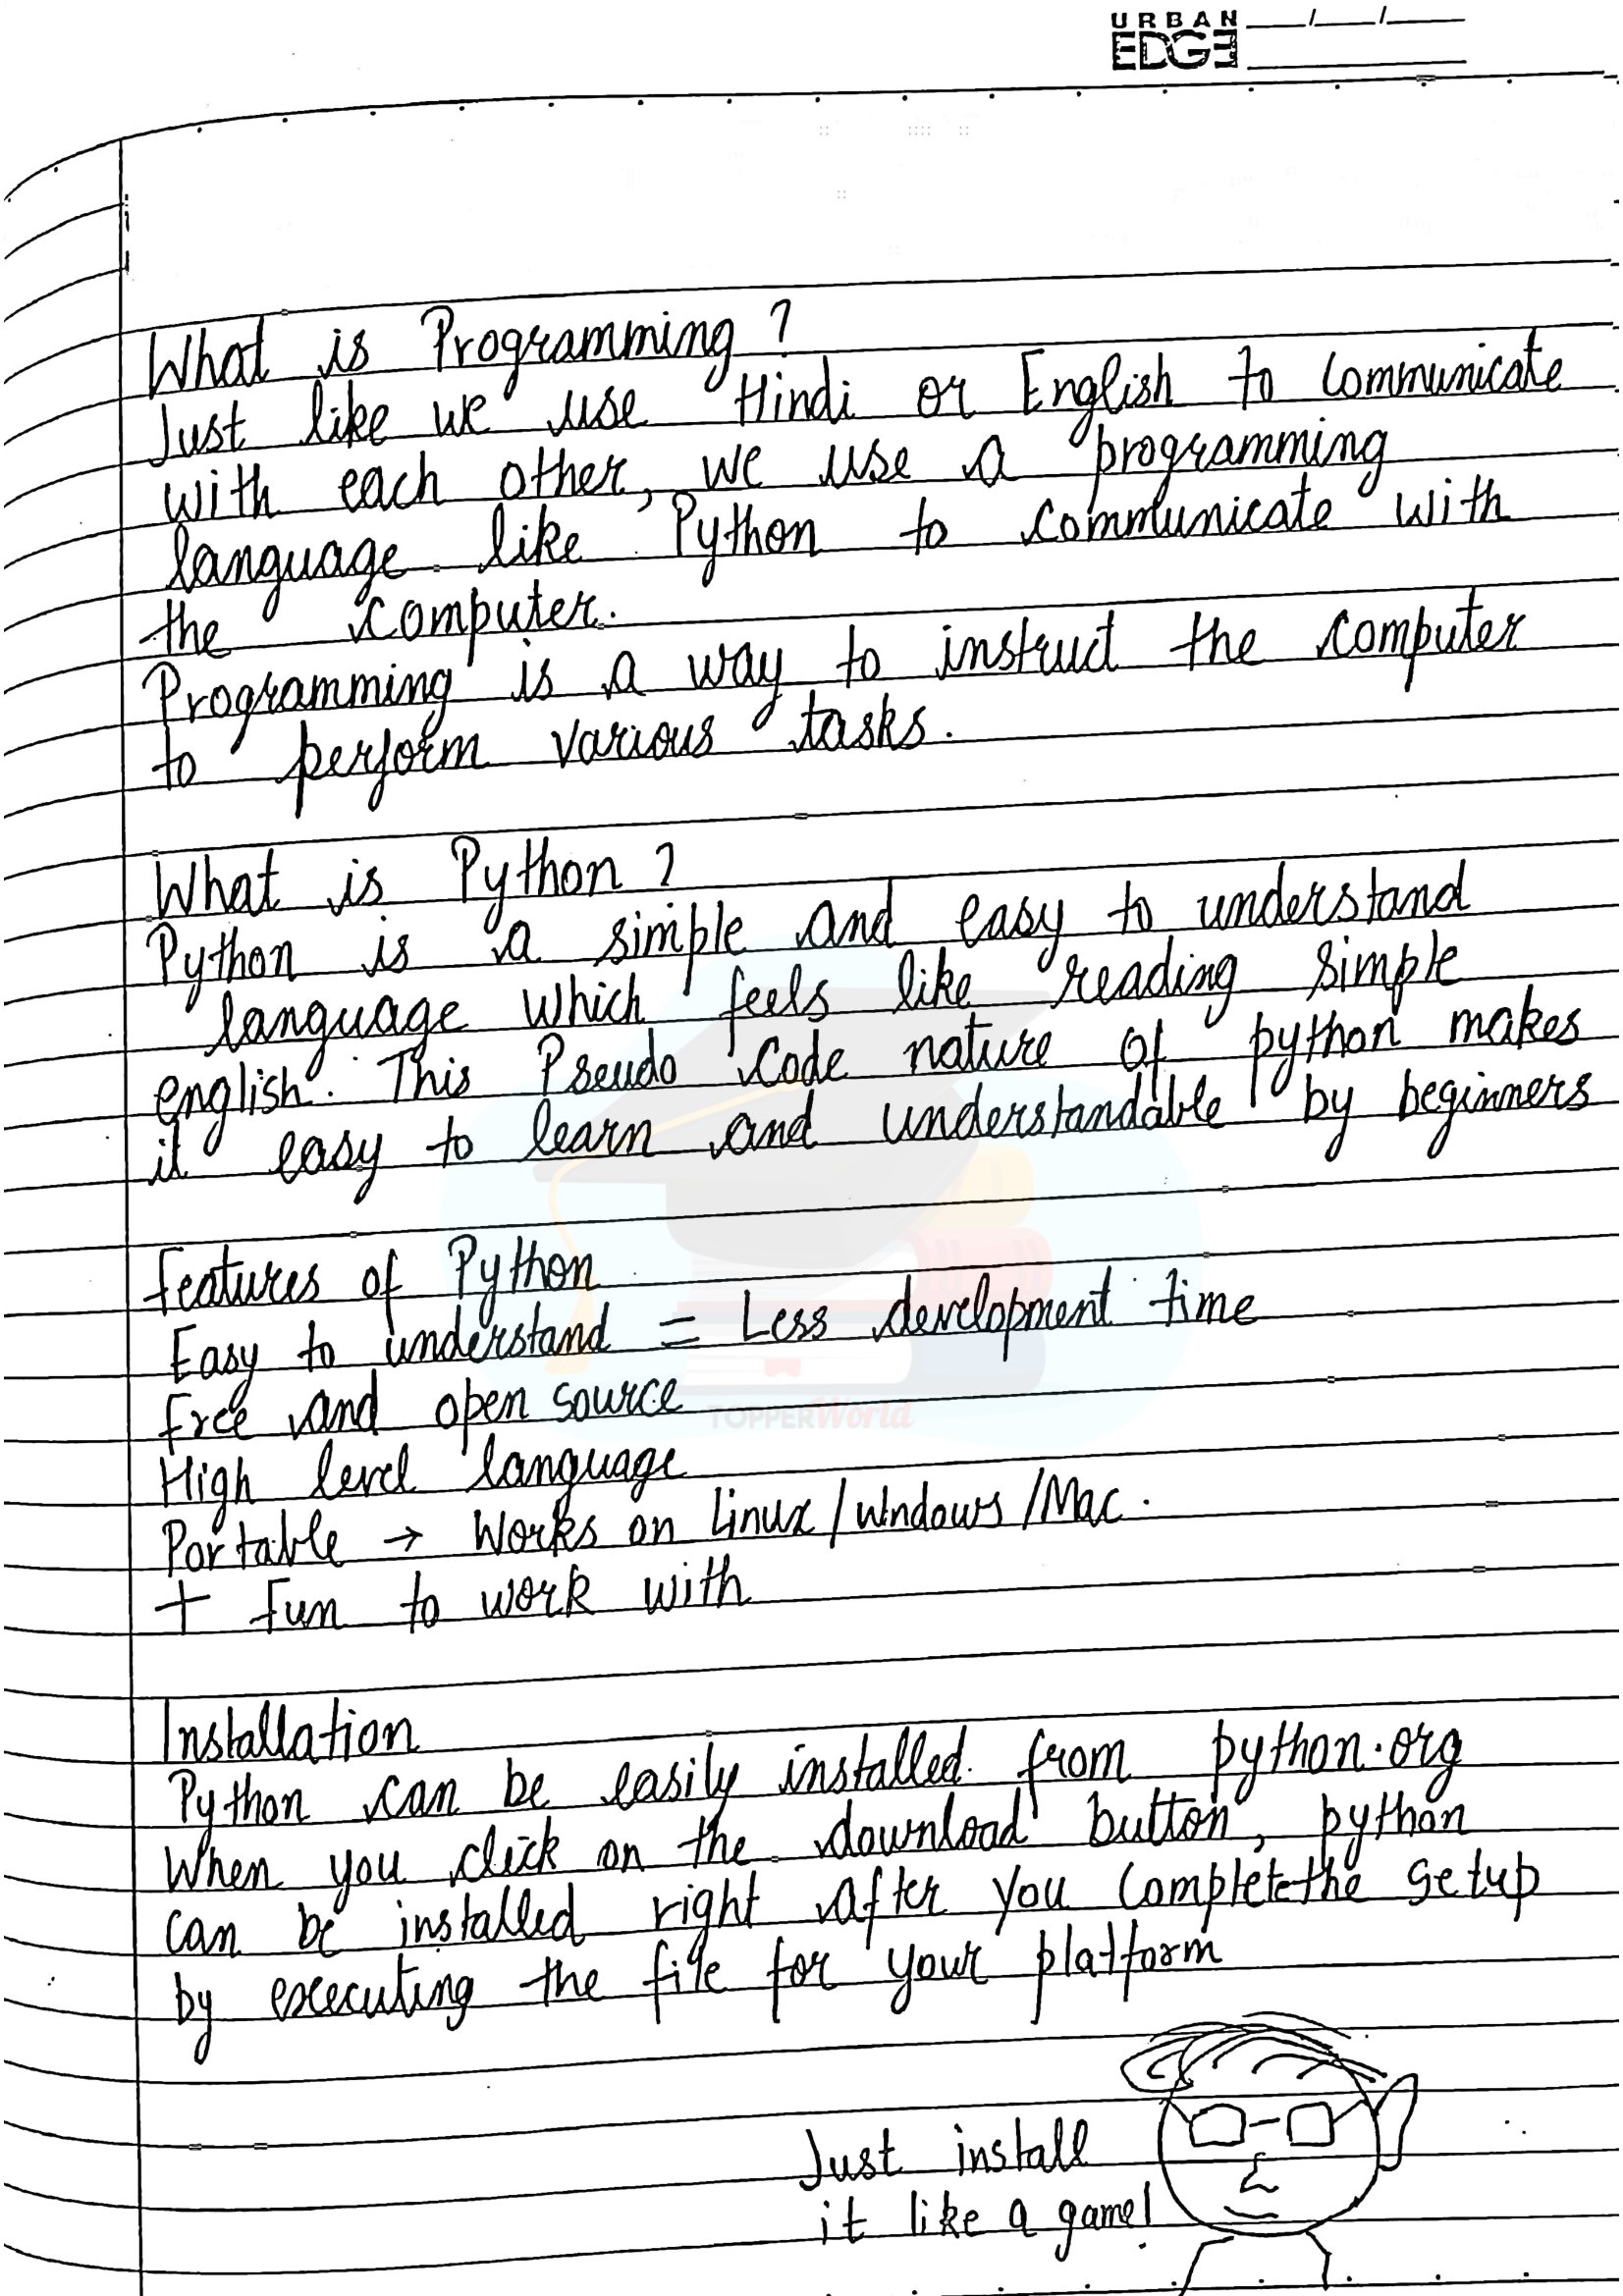 URBAN
EDGE
What is Programming?
Just like we use Hindi or English to Communicate
with each other, we use a programming
language like Python to communicate with
the computer.
Programming is a way to instruct the computer
to perform various tasks.
What is Python?
Python is a simple and easy to understand
language which feels like reading simple
english. This Pseudo code nature of python makes
it easy to learn and understandable by beginners
Features of Python
Easy to understand = Less development time
Free and open source
High level language
Portable → Works on Linux/Windows/Mac.
+ Fun to work with
TOPPERWorld
Installation
Python can be easily installed from python.org
When you click on the download button, python
can be installed right after you complete the setup
by executing the file for your platform
Just install
it like a game!